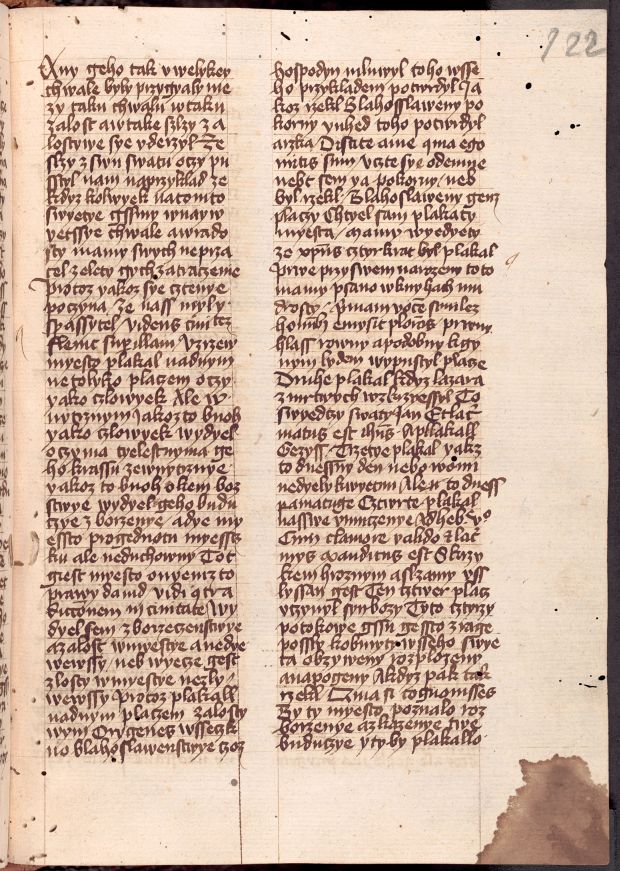 122
Any geho tak v welykey
chwale byly przygyaly nie
zy taku chwalu w taku
zalost a w take szlzy z a
lostywe sye vderzyl Ze
slzy z swu swatu oczy pu
styl nam na przyklad ze
kdyz kolwyek na tomto
swyetye gssmy w nayw
yetssye chwale a w rado
sty mamy swych neprza
tel zelety gych zatraczenie
Protoz yakoz sye cztenye
poczyna ze nass myly
spassytel Videns civitatem
flevit sup illam Vzrzew
myesto plakal nad nym
ne tolyko placzem oczy
yako czlowyek Ale w
nytrznym Jakoz to buoh
yako czlowyek wydyel
oczyma tyelestnyma ge
ho krassu zewnytrznye
yakoz to buoh okem boz
stwye wydyel geho budu
czye z borzenye a dye my
essto progednotu myestss
ku ale ne duchowny Tot
giest myesto o nyemz to
prawy dauid vidi q tra
dictionem in ciuitate Wy
dyel sem z borzeczenstwye
a zalost w myestye a ne dye
wewssy neb wyecze gest
zlosty w myestye nezly
wewssy Protoz plakal
nad nym placzem zalosty
wym Orygenes wsseczk
no blahoslawenstwye czoz
hospodyn mluwyl toho wsse
ho przykladem potwrdyl Ja
koz rzekl Blahosslaweny po
korny yuhed toho potwrdyl
arzka Discite a me quia ego
mitis sum vczte sye ode mne
nebt sem ya pokorny neb
byl rzekl Blahoslaweny genz
placzy Chtyel sam plakaty
myesta Mamy wyedyety
ze xpus cztyrkrat byl plakal
Prwe przy swem narozeny to to
mamy psano w knyhach mu
drosty Primam voce similez
hoibus emysit plorans prwny
hlass rowny a podobny k gy
nym lydem wypustyl placze
Druhe plakal kdyz lazara
z mrtwych wzkrzyessyl To
swyedczy swaty Jan Et lacri
matus est ihus A plakall
Gezyss Trzetye plakal yakz
to dnessny den nebo wotni
nedyely kwyetni Ale y to dness
pamatuge Cztwrte plakal
nasswe vmuczenye Ad heb v°
Cum clamore valido et lacri
mys exauditus est S krzy
kem hroznym a slzamy vss
lyssan gest Ten cztwer placz
vczynyl syn bozy Tyto cztyrzy
potokowe gssu gessto z rage
possly kobmyti wsseho swye
ta obzyweny rozplozeny
a napogeny A kdyz pak tak
rzekl Quia si cognouisses
By ty myesto poznalo roz
borzenye a zkazenye twe
buduczye y ty by plakallo